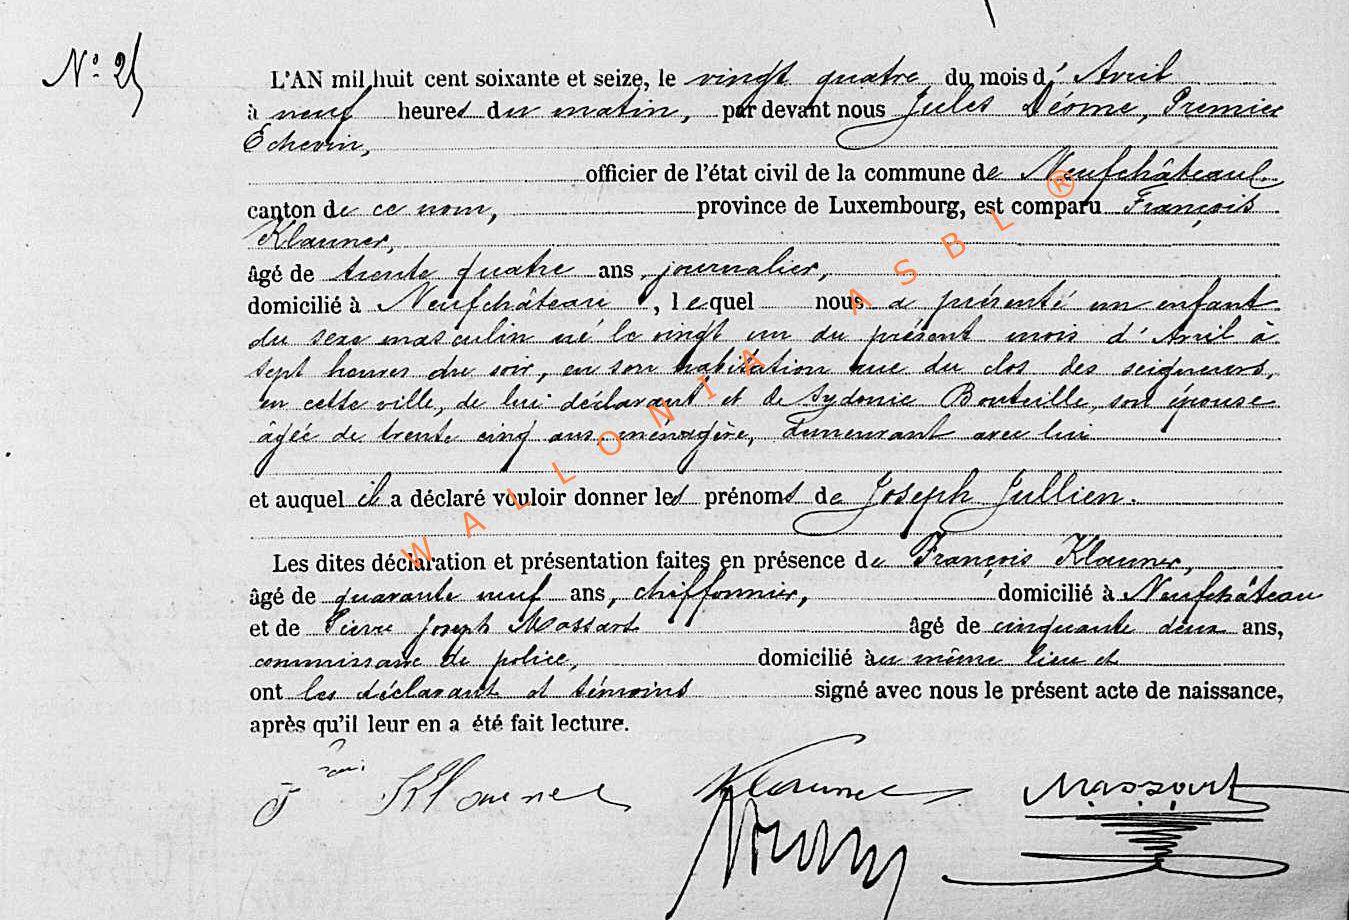 N° 25
L'AN mil huit cent soixante et seize, le vingt quatre du mois d'Avril
à neuf heures du matin, par devant nous Jules Déome, Premier
Echevin,
officier de l'état civil de la commune de Neufchâteau,
canton de ce nom, province de Luxembourg, est comparu François
Klauner,
âgé de trente quatre ans, journalier,
domicilié à Neufchâteau, lequel nous a présenté un enfant
du sexe masculin né le vingt un du présent mois d'Avril à
sept heures du soir, en son habitation rue du clos des seigneurs,
en cette ville, de lui déclarant et de Sydonie Bouteille, son épouse
âgée de trente cinq ans, ménagère, demeurant avec lui
et auquel il a déclaré vouloir donner les prénoms de Joseph Jullien.
Les dites déclaration et présentation faites en présence de François Klauner,
âgé de quarante neuf ans, chiffonnier, domicilié à Neufchâteau
et de Pierre Joseph Massart âgé de cinquante deux ans,
commissaire de police, domicilié au même lieu et
ont les déclarant et témoins signé avec nous le présent acte de naissance,
après qu'il leur en a été fait lecture.
Klauner Klauner Massart
WALLONIA ASBL ®